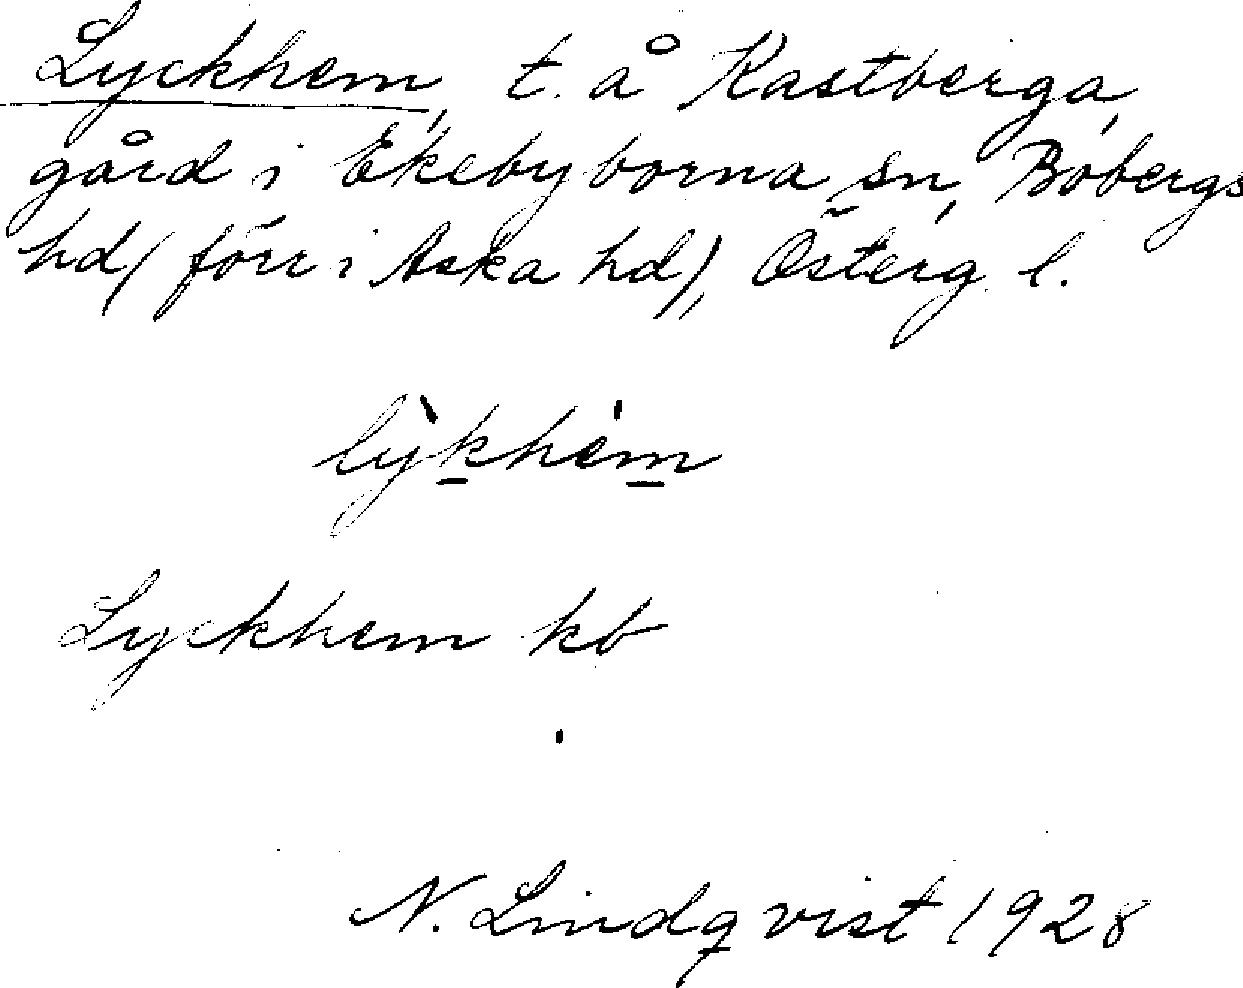 Lyckhem, t. å Kastberga,
gård i Ekebyborna sn, Bobergs
hd (förr i Aska hd), Österg. l.
lỳkhém
Lyckhem kb
N. Lindqvist 1928